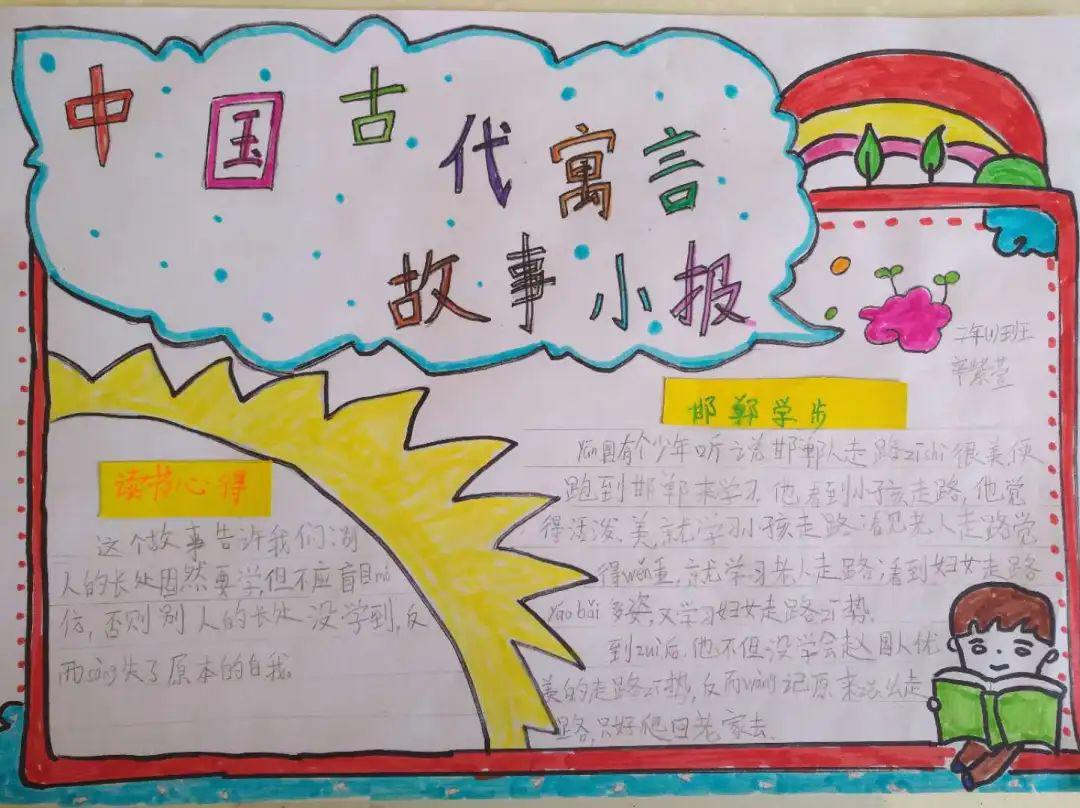 中国古代寓言
故事小报
二年(1)班
辛紫萱
邯郸学步
Yān国有个少年听说邯郸人走路zīshì很美便
跑到邯郸来学习.他看到小孩走路,他觉
得活泼、美,就学习小孩走路.看见老人走路觉
得wěn重,就学习老人走路;看到妇女走路
yáo bǎi多姿,又学习妇女走路zī势.
到zuì后,他不但没学会赵国人优
美的走路zī势,反而wàng记原来怎么走
路,只好爬回老家去.
读书心得
这个故事告诉我们
人的长处固然要学,但不应盲目mó
仿,否则别人的长处没学到,反
而sàng失了原本的自我.